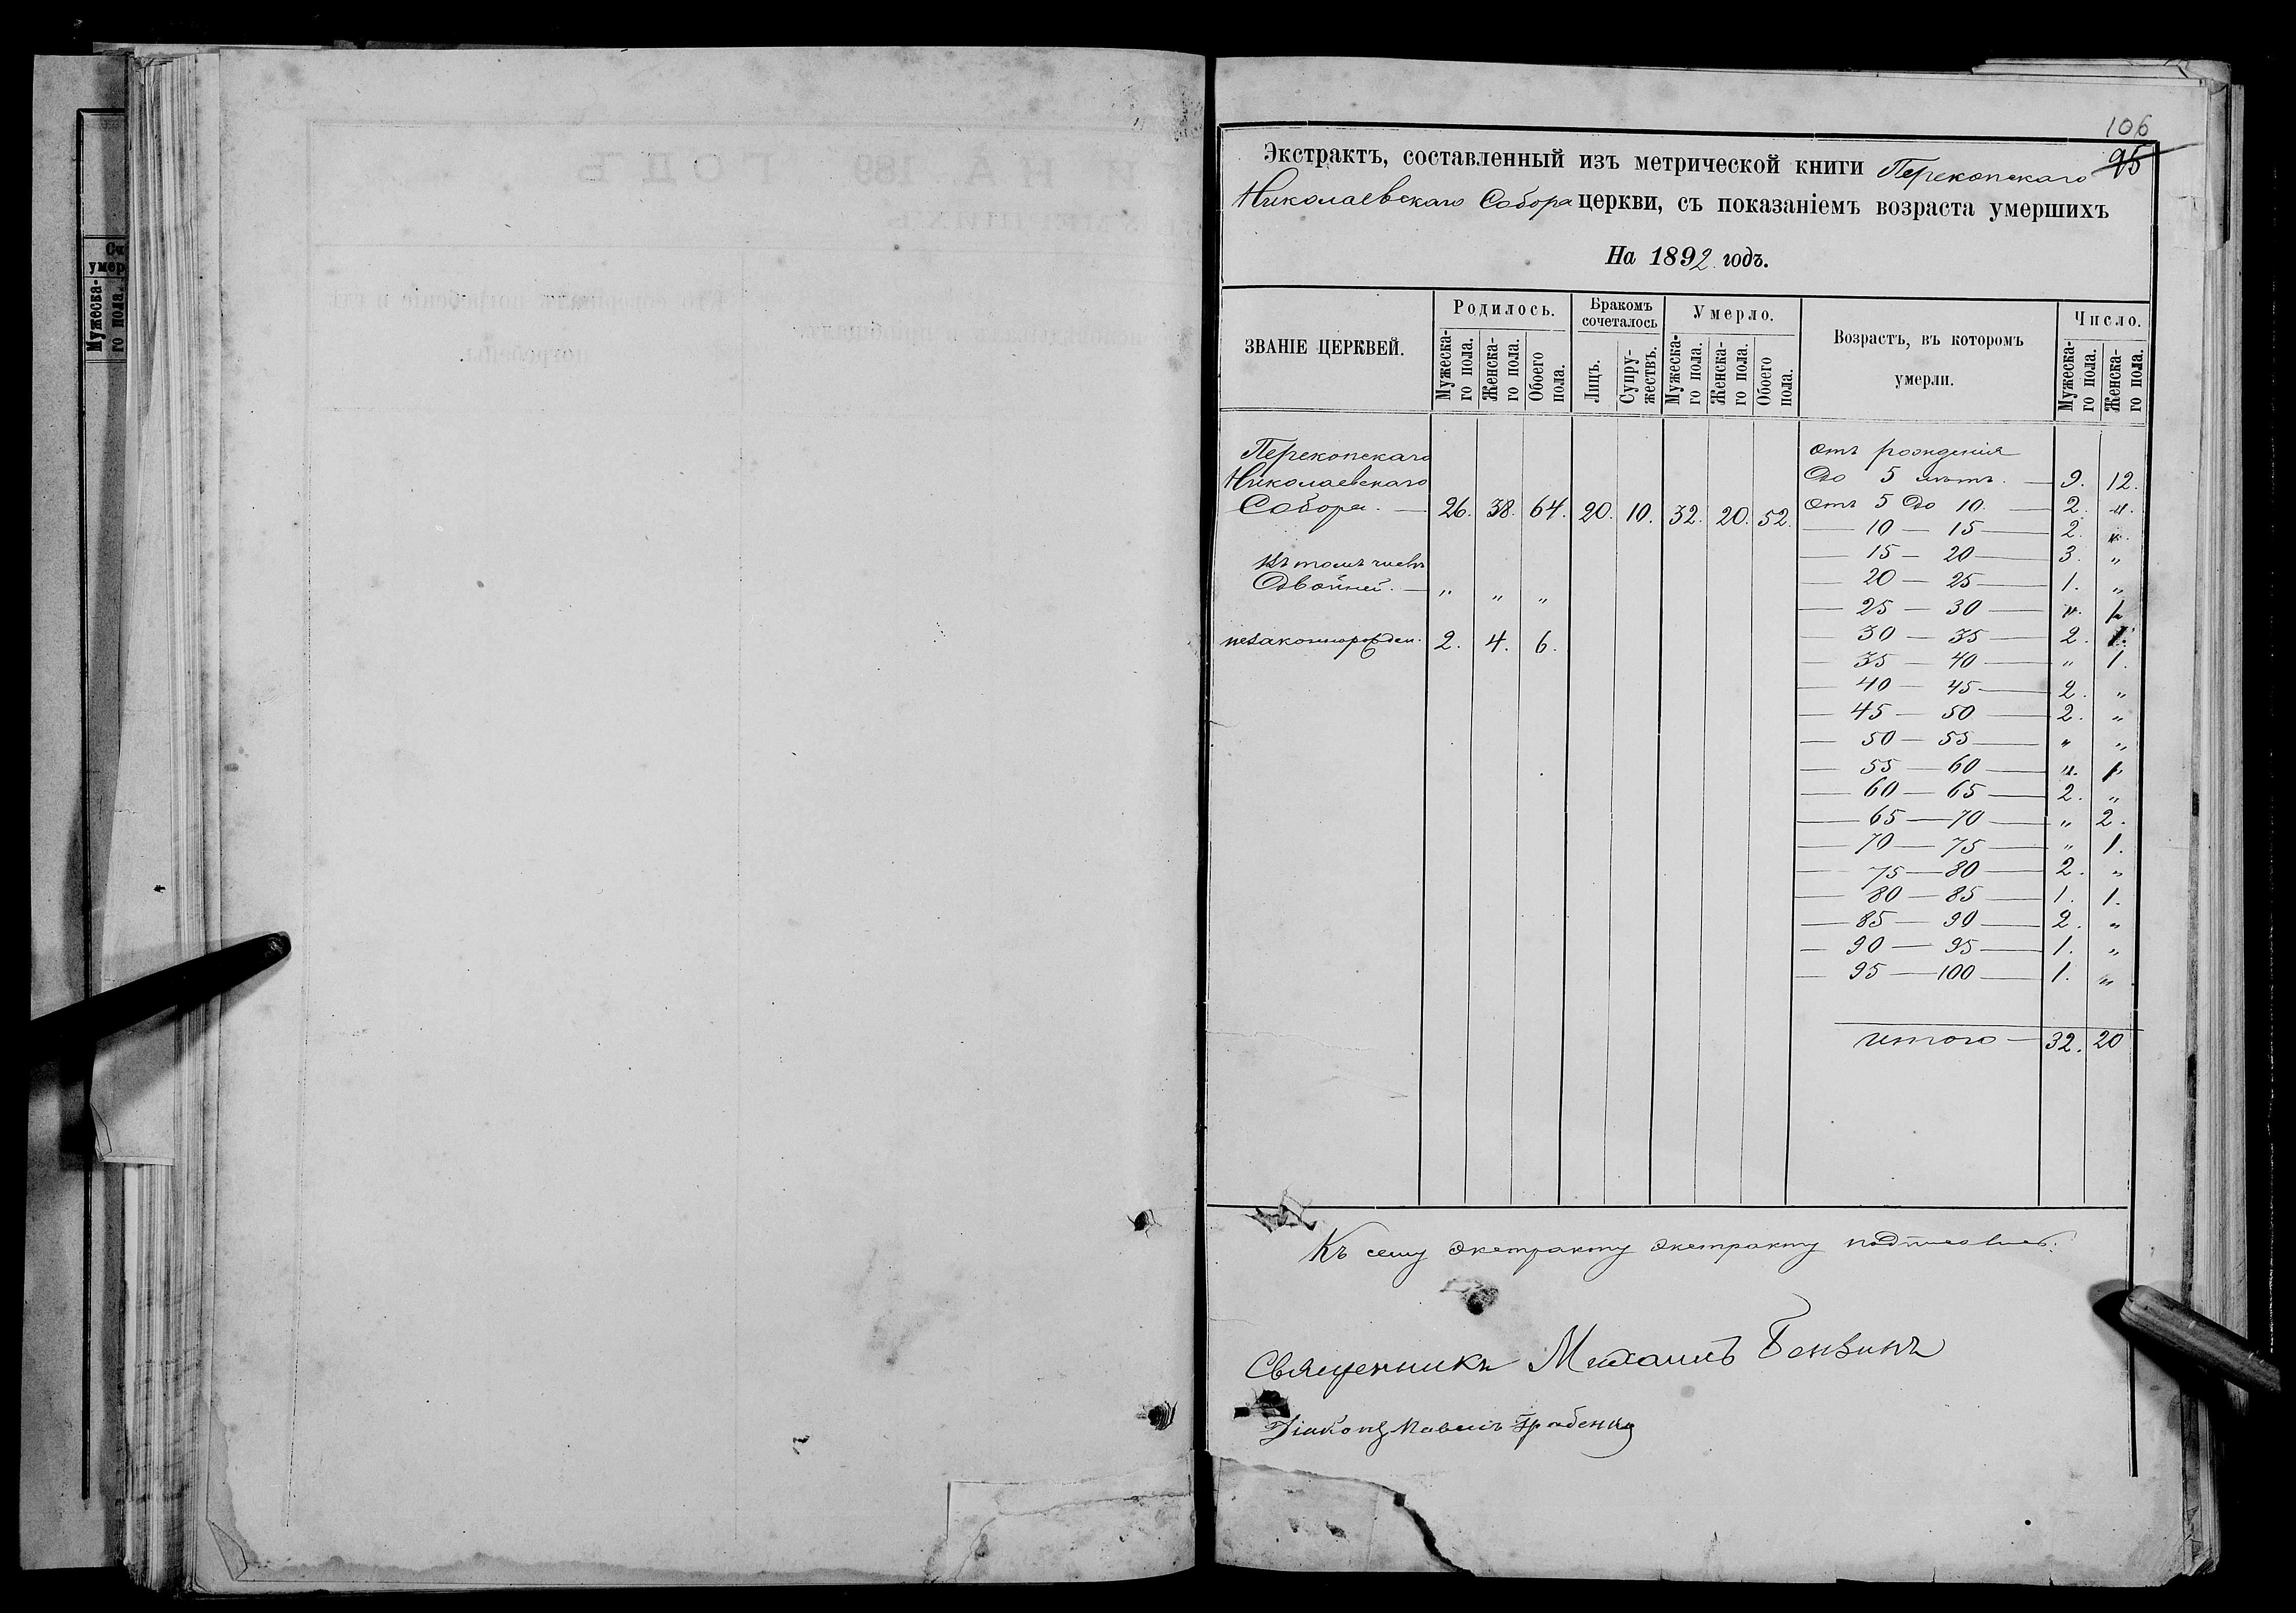 106
95
Экстрактъ, составленный изъ метрической книги Перекопскаго
Николаевскаго Собора церкви, съ показаніемъ возраста умершихъ
На 1892 годъ.
ЗВАНІЕ ЦЕРКВЕЙ.
Родилось.
Мужеска-
го пола.
Женска-
го пола.
Обоего
пола.
Бракомъ
сочеталось
Лицъ.
Супру-
жествъ.
Умерло.
Мужеска-
го пола.
Женска-
го пола.
Обоего
пола.
Возрастъ, въ которомъ
умерли.
Число.
Мужеска-
го пола.
Женска-
го пола.
Перекопскаго
Николаевскаго
Собора. — 26. 38. 64. 20. 10. 32. 20. 52.
Въ томъ числѣ
Двойней. — " " "
незаконнорожден. 2. 4. 6.
отъ рожденія
до 5 лѣтъ. — 9. 12.
отъ 5 до 10. — 2. "
— 10 — 15 — 2. "
— 15 — 20 — 3. "
— 20 — 25 — 1. "
— 25 — 30 — " 1.
— 30 — 35 — 2. 1.
— 35 — 40 — " 1.
— 40 — 45 — 2. "
— 45 — 50 — 2. "
— 50 — 55 — " "
— 55 — 60 — " 1.
— 60 — 65 — 2. "
— 65 — 70 — " 2.
— 70 — 75 — " 1.
— 75 — 80 — 2. "
— 80 — 85 — 1. 1.
— 85 — 90 — 2. "
— 90 — 95 — 1. "
— 95 — 100 — 1. "
итого — 32. 20
Къ сему экстракту экстракту подписались:
Священникъ Михаилъ
Діаконъ
Ск
умер
Мужеска-
го пола.